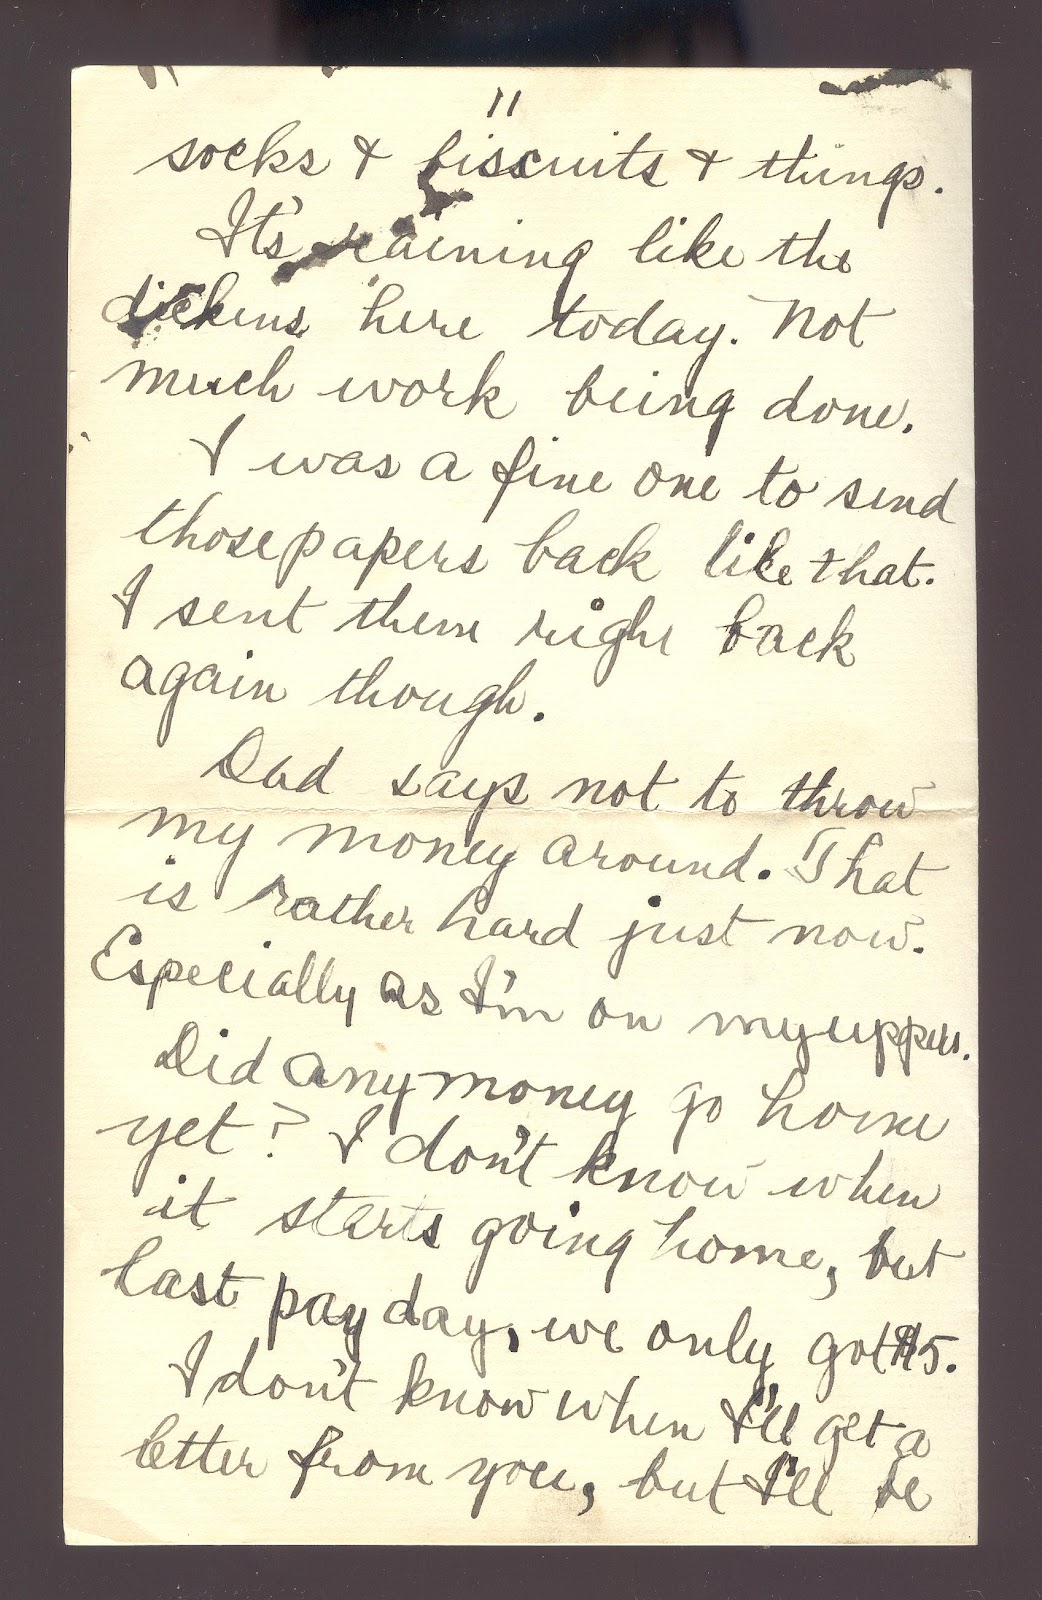 11
socks & biscuits & things.
It's raining like the
dickens here today. Not
much work being done.
I was a fine one to send
those papers back like that.
I sent them right back
again though.
Dad says not to throw
my money around. That
is rather hard just now.
Especially as I'm on my uppers.
Did any money go home
yet? I don't know when
it starts going home, but
last pay day, we only got $5.
I don't know when I'll get a
letter from you, but I'll be